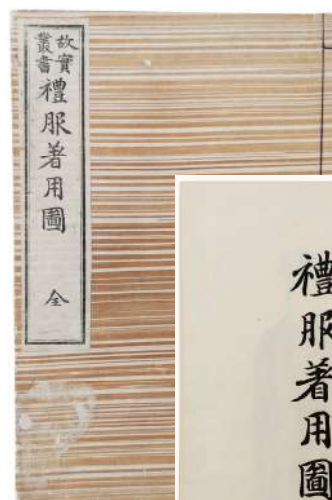 故實
叢書
禮服著用圖
全
禮服著用圖